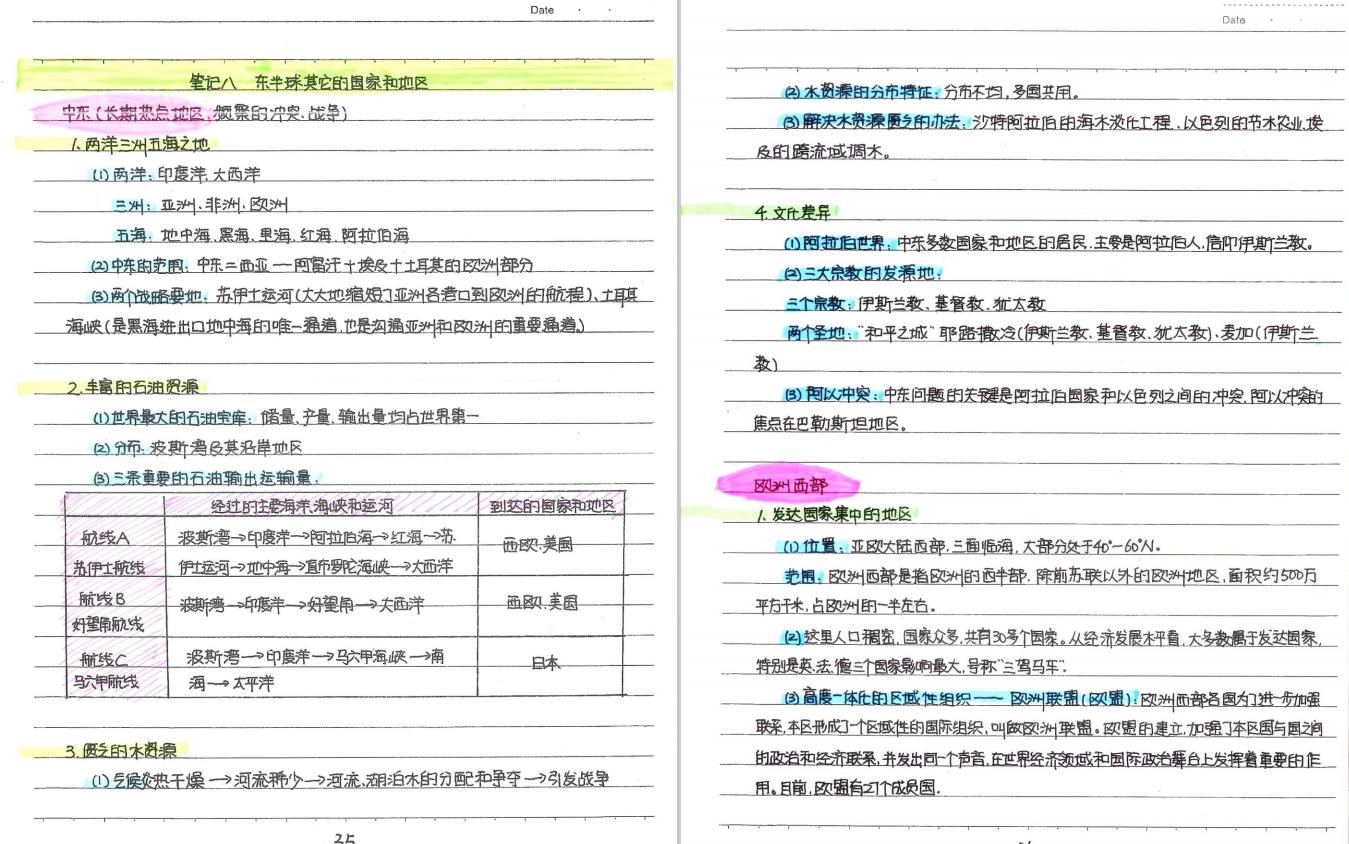 Date
笔记八 东半球其它的国家和地区
中东(长期热点地区,频繁的冲突、战争)
1. 两洋三州五海之地
(1) 两洋: 印度洋、大西洋
三州: 亚洲、非洲、欧洲
五海: 地中海、黑海、里海、红海、阿拉伯海
(2) 中东的范围: 中东=西亚—阿富汗+埃及+土耳其的欧洲部分
(3) 两个战略要地: 苏伊士运河(大大地缩短了亚洲各港口到欧洲的航程)、土耳其
海峡(是黑海进出口地中海的唯一通道,也是沟通亚洲和欧洲的重要通道。)
2. 丰富的石油资源
(1) 世界最大的石油宝库: 储量、产量、输出量均占世界第一
(2) 分布: 波斯湾及其沿岸地区
(3) 三条重要的石油输出运输量:
经过的主要海洋、海峡和运河 到达的国家和地区
航线A 波斯湾→印度洋→阿拉伯海→红海→苏 西欧、美国
苏伊士航线 伊士运河→地中海→直布罗陀海峡→大西洋
航线B 波斯湾→印度洋→好望角→大西洋 西欧、美国
好望角航线
航线C 波斯湾→印度洋→马六甲海峡→南 日本
马六甲航线 海→太平洋
3. 匮乏的水资源
(1) 气候炎热干燥→河流稀少→河流、湖泊水的分配和争夺→引发战争
35
Date
(2) 水资源的分布特征: 分布不均,多国共用。
(3) 解决水资源匮乏的办法: 沙特阿拉伯的海水淡化工程、以色列的节水农业、埃
及的跨流域调水。
4. 文化差异
(1) 阿拉伯世界: 中东多数国家和地区的居民,主要是阿拉伯人,信仰伊斯兰教。
(2) 三大宗教的发源地:
三个宗教: 伊斯兰教、基督教、犹太教
两个圣地: “和平之城”耶路撒冷(伊斯兰教、基督教、犹太教)、麦加(伊斯兰
教)
(3) 阿以冲突: 中东问题的关键是阿拉伯国家和以色列之间的冲突,阿以冲突的
焦点在巴勒斯坦地区。
欧洲西部
1. 发达国家集中的地区
(1) 位置: 亚欧大陆西部,三面临海,大部分处于40°—60°N。
范围: 欧洲西部是指欧洲的西半部,除前苏联以外的欧洲地区,面积约500万
平方千米,占欧洲的一半左右。
(2) 这里人口稠密,国家众多,共有30多个国家。从经济发展水平看,大多数属于发达国家,
特别是英、法、德三个国家影响最大,号称“三驾马车”。
(3) 高度一体化的区域性组织—— 欧洲联盟(欧盟): 欧洲西部各国为了进一步加强
联系,本区形成了一个区域性的国际组织,叫做欧洲联盟。欧盟的建立,加强了本区国与国之间
的政治和经济联系,并发出同一个声音,在世界经济领域和国际政治舞台上发挥着重要的作
用。目前,欧盟有27个成员国.